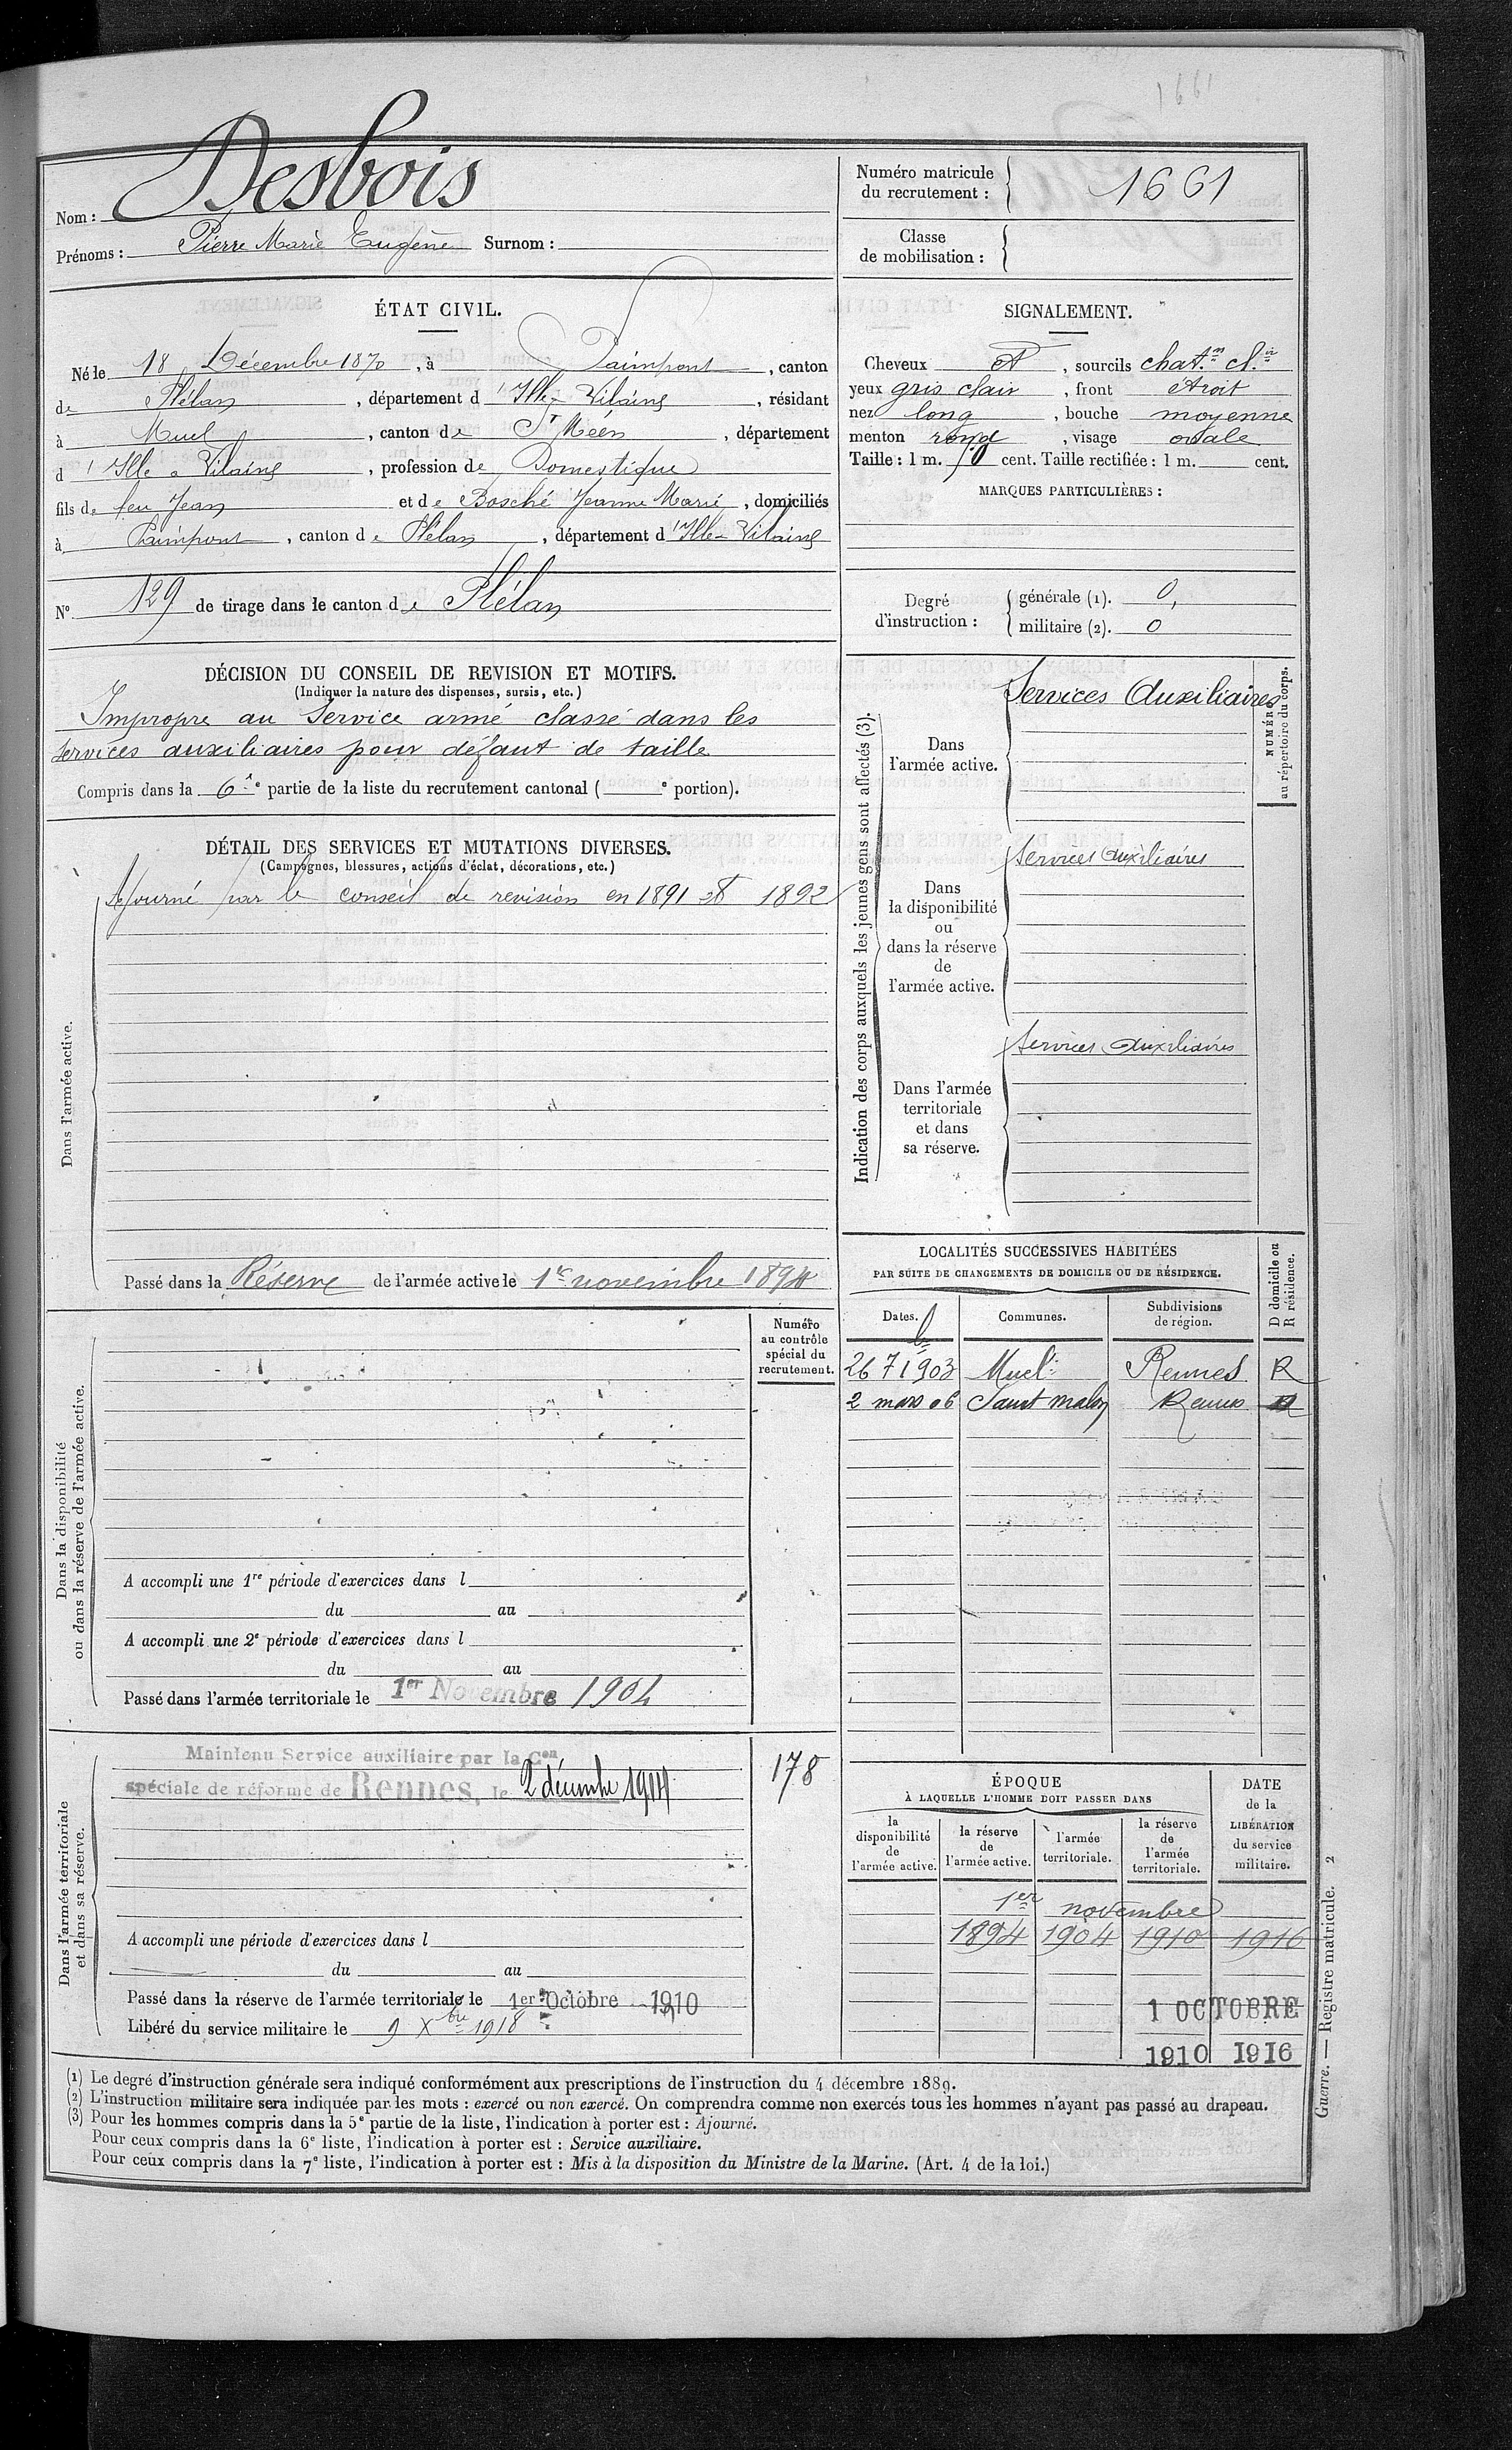 1661
Nom : Desbois
Prénoms : Pierre Marie Eugène Surnom :
Numéro matricule du recrutement : 1661
Classe de mobilisation :
ÉTAT CIVIL.
Né le 18 Décembre 1870, à Paimpont, canton
de Plélan, département d'Ille-Vilaine, résidant
à Muel, canton de St Méen, département
d'Ille & Vilaine, profession de Domestique
fils de feu Jean et de Bosché Jeanne Marie, domiciliés
à Paimpont, canton de Plélan, département d'Ille-Vilaine
N° 129 de tirage dans le canton de Plélan
SIGNALEMENT.
Cheveux et, sourcils chat.n cl.r
yeux gris clair, front étroit
nez long, bouche moyenne
menton rond, visage ovale
Taille : 1 m. 50 cent. Taille rectifiée : 1 m. cent.
MARQUES PARTICULIÈRES :
Degré d'instruction :
générale (1). 0,
militaire (2). 0
DÉCISION DU CONSEIL DE REVISION ET MOTIFS.
(Indiquer la nature des dispenses, sursis, etc.)
Impropre au Service armé classé dans les
services auxiliaires pour défaut de taille
Compris dans la 6e partie de la liste du recrutement cantonal ( e portion).
DÉTAIL DES SERVICES ET MUTATIONS DIVERSES.
(Campagnes, blessures, actions d'éclat, décorations, etc.)
Dans l'armée active.
Ajourné par le conseil de revision en 1891 et 1892
Passé dans la Réserve de l'armée active le 1er novembre 1894
Indication des corps auxquels les jeunes gens sont affectés (3).
NUMÉRO
au répertoire du corps.
Dans
l'armée active.
Services Auxiliaires
Dans
la disponibilité
ou
dans la réserve
de
l'armée active.
Services Auxiliaires
Dans l'armée
territoriale
et dans
sa réserve.
Services Auxiliaires
LOCALITÉS SUCCESSIVES HABITÉES
PAR SUITE DE CHANGEMENTS DE DOMICILE OU DE RÉSIDENCE.
D domicile ou
R résidence.
Dates. Communes. Subdivisions
de région.
26 7bre 1903 Muel Rennes R
2 mars 06 Saint Malon Rennes
Dans la disponibilité
ou dans la réserve de l'armée active.
Numéro
au contrôle
spécial du
recrutement.
A accompli une 1re période d'exercices dans l
du au
A accompli une 2e période d'exercices dans l
du au
Passé dans l'armée territoriale le 1er Novembre 1904
Dans l'armée territoriale
et dans sa réserve.
Maintenu Service auxiliaire par la Con
spéciale de réforme de Rennes, le 2 décembre 1914
178
A accompli une période d'exercices dans l
du au
Passé dans la réserve de l'armée territoriale le 1er Octobre 1910
Libéré du service militaire le 9 Xbre 1918
ÉPOQUE
À LAQUELLE L'HOMME DOIT PASSER DANS
DATE
de la
LIBÉRATION
du service
militaire.
la
disponibilité
de
l'armée active.
la réserve
de
l'armée active.
l'armée
territoriale.
la réserve
de
l'armée
territoriale.
1er novembre
1894 1904 1910 1916
1 OCTOBRE
1910 1916
(1) Le degré d'instruction générale sera indiqué conformément aux prescriptions de l'instruction du 4 décembre 1889.
(2) L'instruction militaire sera indiquée par les mots : exercé ou non exercé. On comprendra comme non exercés tous les hommes n'ayant pas passé au drapeau.
(3) Pour les hommes compris dans la 5e partie de la liste, l'indication à porter est : Ajourné.
Pour ceux compris dans la 6e liste, l'indication à porter est : Service auxiliaire.
Pour ceux compris dans la 7e liste, l'indication à porter est : Mis à la disposition du Ministre de la Marine. (Art. 4 de la loi.)
Guerre. — Registre matricule. 2